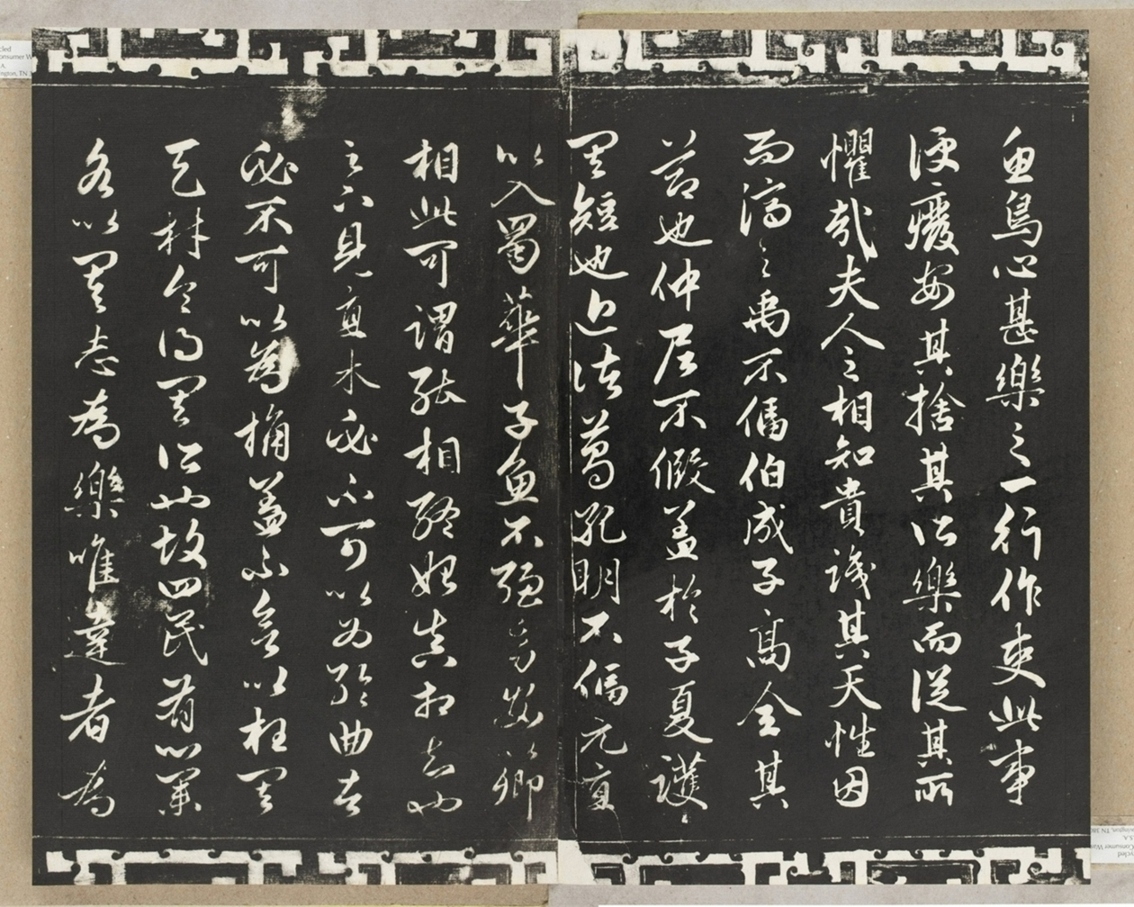 魚鳥心甚樂之一行作吏此事
便癈安其捨其所樂而從其所
懼哉夫人之相知貴識其天性因
而濟之禹不偪伯成子高全其
節也仲尼不假蓋於子夏護〻
其短也近諸葛孔明不偪元直
以入蜀華子魚不強幼安以卿
相此可謂能相終始真相知也
足下見直木必不可以為輪曲者
必不可以為桷蓋不欲以枉其
天材令得其所也故四民有以業
各以其志為樂唯達者為